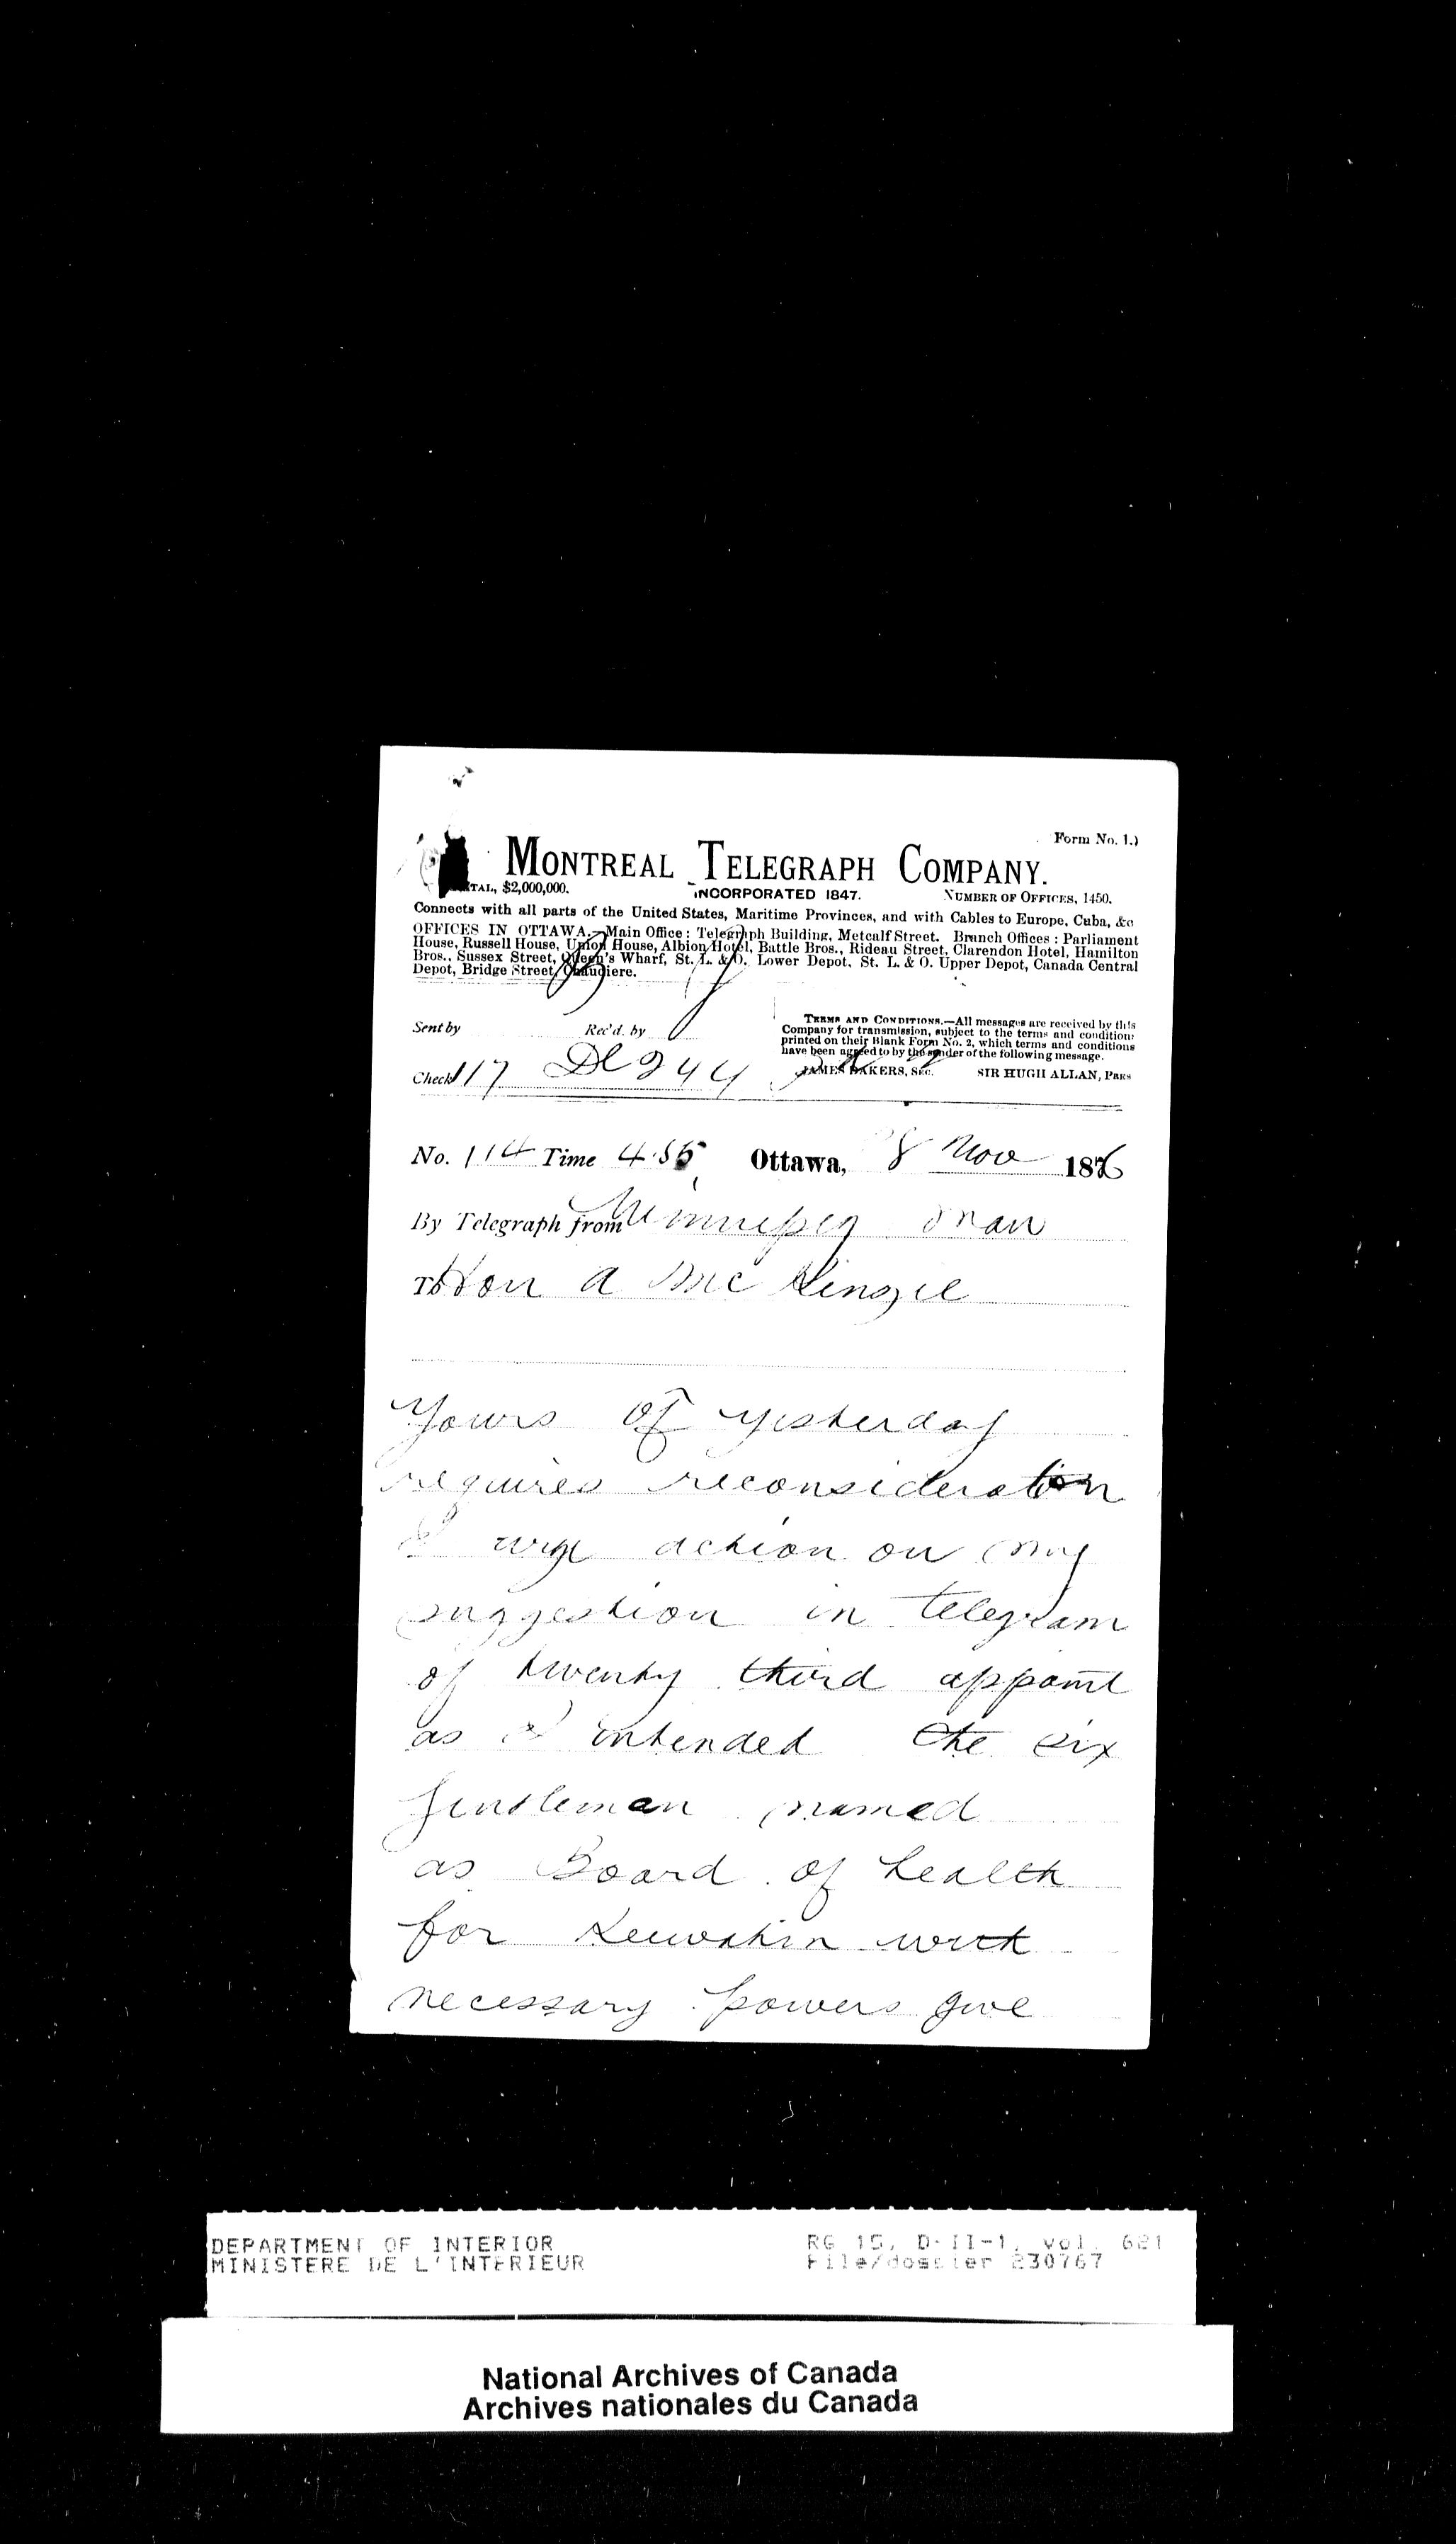 Form No. 1.)
MONTREAL TELEGRAPH COMPANY.
TAL, $2,000,000. INCORPORATED 1847. NUMBER OF OFFICES, 1450.
Connects with all parts of the United States, Maritime Provinces, and with Cables to Europe, Cuba, &c
OFFICES IN OTTAWA.—Main Office: Telegraph Building, Metcalf Street. Branch Offices: Parliament
House, Russell House, Union House, Albion Hotel, Battle Bros., Rideau Street, Clarendon Hotel, Hamilton
Bros., Sussex Street, Queen's Wharf, St. L. & O. Lower Depot, St. L. & O. Upper Depot, Canada Central
Depot, Bridge Street, Chaudiere.
Sent by Rec'd. by
TERMS AND CONDITIONS.—All messages are received by this
Company for transmission, subject to the terms and condition:
printed on their Blank Form No. 2, which terms and conditions
have been agreed to by the sender of the following message.
JAMES DAKERS, SEC. SIR HUGH ALLAN, PRES
Check 117 DH 244
No. 114 Time 4.55 Ottawa, 8 Nov 1876
By Telegraph from Winnipeg Man
To Hon A McKenzie
Yours of yesterday
requires reconsideration
I urge action on my
suggestion in telegram
of twenty third appoint
as I intended the six
gentleman named
as Board of health
for Keewatin with
necessary powers give
DEPARTMENT OF INTERIOR RG 15, D-II-1, vol. 621
MINISTERE DE L'INTERIEUR File/dossier 230767
National Archives of Canada
Archives nationales du Canada